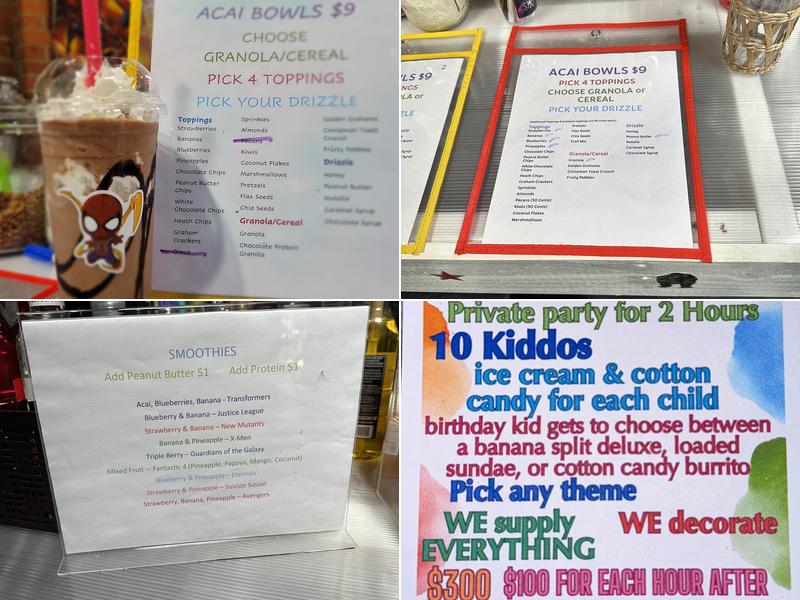 ACAI BOWLS $9
CHOOSE
GRANOLA/CEREAL
PICK 4 TOPPINGS
PICK YOUR DRIZZLE
Toppings
Strawberries
Bananas
Blueberries
Pineapples
Chocolate Chips
Peanut Butter
Chips
White
Chocolate Chips
Heath Chips
Graham
Crackers
Oreos
Sprinkles
Almonds
Pecans
Kiwis
Coconut Flakes
Marshmallows
Pretzels
Flax Seeds
Chia Seeds
Granola/Cereal
Granola
Chocolate Protein
Granola
Golden Grahams
Cinnamon Toast
Crunch
Fruity Pebbles
Drizzle
Honey
Peanut Butter
Nutella
Caramel Syrup
Chocolate Syrup
LS $9
OPPINGS
OLA or
DRIZZLE
ACAI BOWLS $9
PICK 4 TOPPINGS
CHOOSE GRANOLA or
CEREAL
PICK YOUR DRIZZLE
Toppings
Strawberries
Bananas
Blueberries
Pineapples
Chocolate Chips
Peanut Butter
Chips
White Chocolate
Chips
Heath Chips
Graham Crackers
Sprinkles
Almonds
Pecans (50 Cents)
Kiwis (50 Cents)
Coconut Flakes
Marshmallows
Pretzels
Flax Seeds
Chia Seeds
Trail Mix
Granola/Cereal
Granola
Golden Grahams
Cinnamon Toast Crunch
Fruity Pebbles
Drizzle
Honey
Peanut Butter
Nutella
Caramel Syrup
Chocolate Syrup
SMOOTHIES
Add Peanut Butter $1 Add Protein $1
Acai, Blueberries, Banana - Transformers
Blueberry & Banana – Justice League
Strawberry & Banana – New Mutants
Banana & Pineapple – X-Men
Triple Berry – Guardians of the Galaxy
Mixed Fruit – Fantastic 4 (Pineapple, Papaya, Mango, Coconut)
Blueberry & Pineapple – Eternals
Strawberry & Pineapple – Suicide Squad
Strawberry, Banana, Pineapple – Avengers
Private party for 2 Hours
10 Kiddos
ice cream & cotton
candy for each child
birthday kid gets to choose between
a banana split deluxe, loaded
sundae, or cotton candy burrito
Pick any theme
WE supply
EVERYTHING
WE decorate
$300 $100 FOR EACH HOUR AFTER